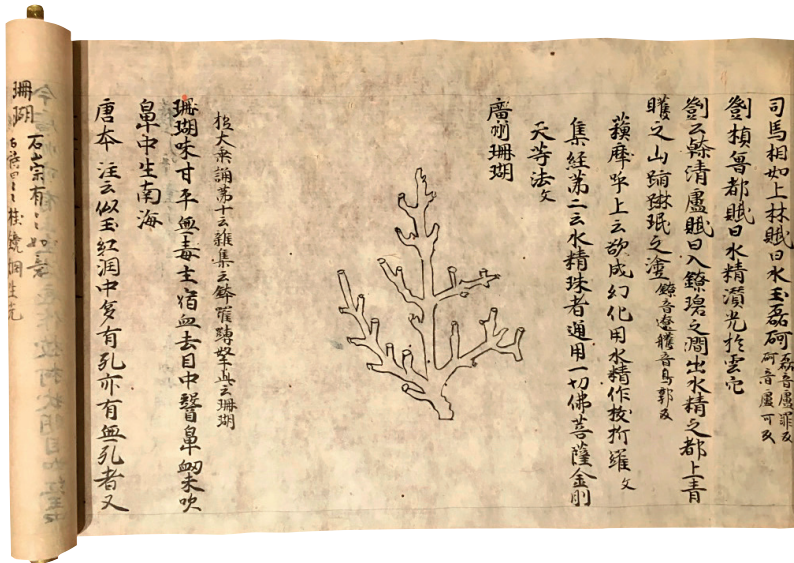 司馬相如上林賦曰水玉磊砢 磊音盧罪反 砢音盧可反
劉楨魯都賦曰水精瀅光於雲穴
劉云 清盧賦曰入鐐碧之澗出水精之都上青
之山蹋琳珉之塗 鐐音遼 音烏郭反
蘓摩呼上云欲成幻化用水精作 羅文
集經第二云水精珠者通用一切佛菩薩金剛
天等法文
廣州珊瑚
大乗誦第十云雜集云鉢羅 云珊瑚
珊瑚味甘平無毒主宿血去目中翳鼻衂末吹
鼻中生南海
唐本注云似玉紅潤中多有孔亦有無孔者又
珊瑚 石崇有